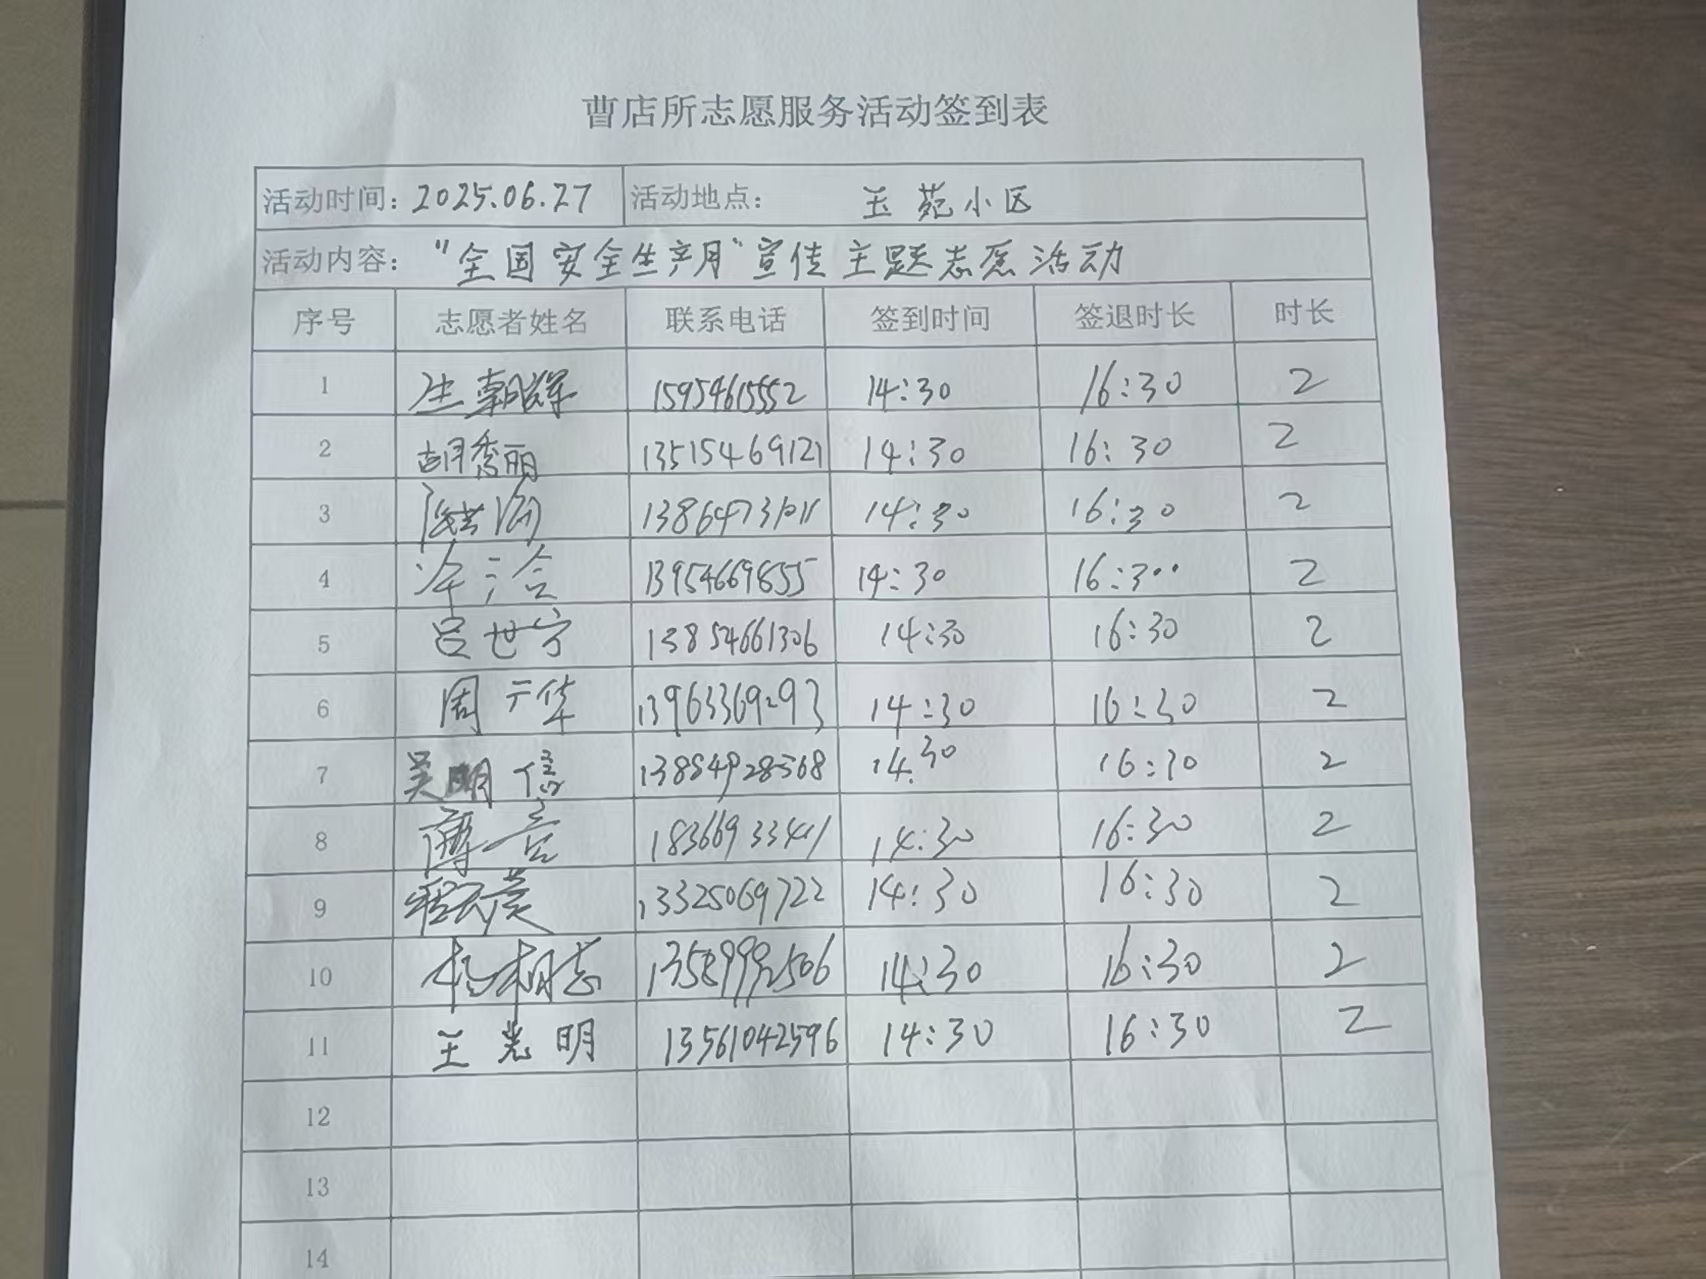 曹店所志愿服务活动签到表
活动时间: 2025.06.27 活动地点: 玉苑小区
活动内容: "全国安全生产月"宣传主题志愿活动
序号 志愿者姓名 联系电话 签到时间 签退时长 时长
1 生朝辉 15954615552 14:30 16:30 2
2 胡秀丽 13515469121 14:30 16:30 2
3 14:30 16:30 2
4 13954669855 14:30 16:30 2
5 吕世宁 13854661306 14:30 16:30 2
6 周广华 13963369293 14:30 16:30 2
7 吴明信 13884928568 14:30 16:30 2
8 14:30 16:30 2
9 13325069722 14:30 16:30 2
10 13589992506 14:30 16:30 2
11 王光明 13561042596 14:30 16:30 2
12
13
14